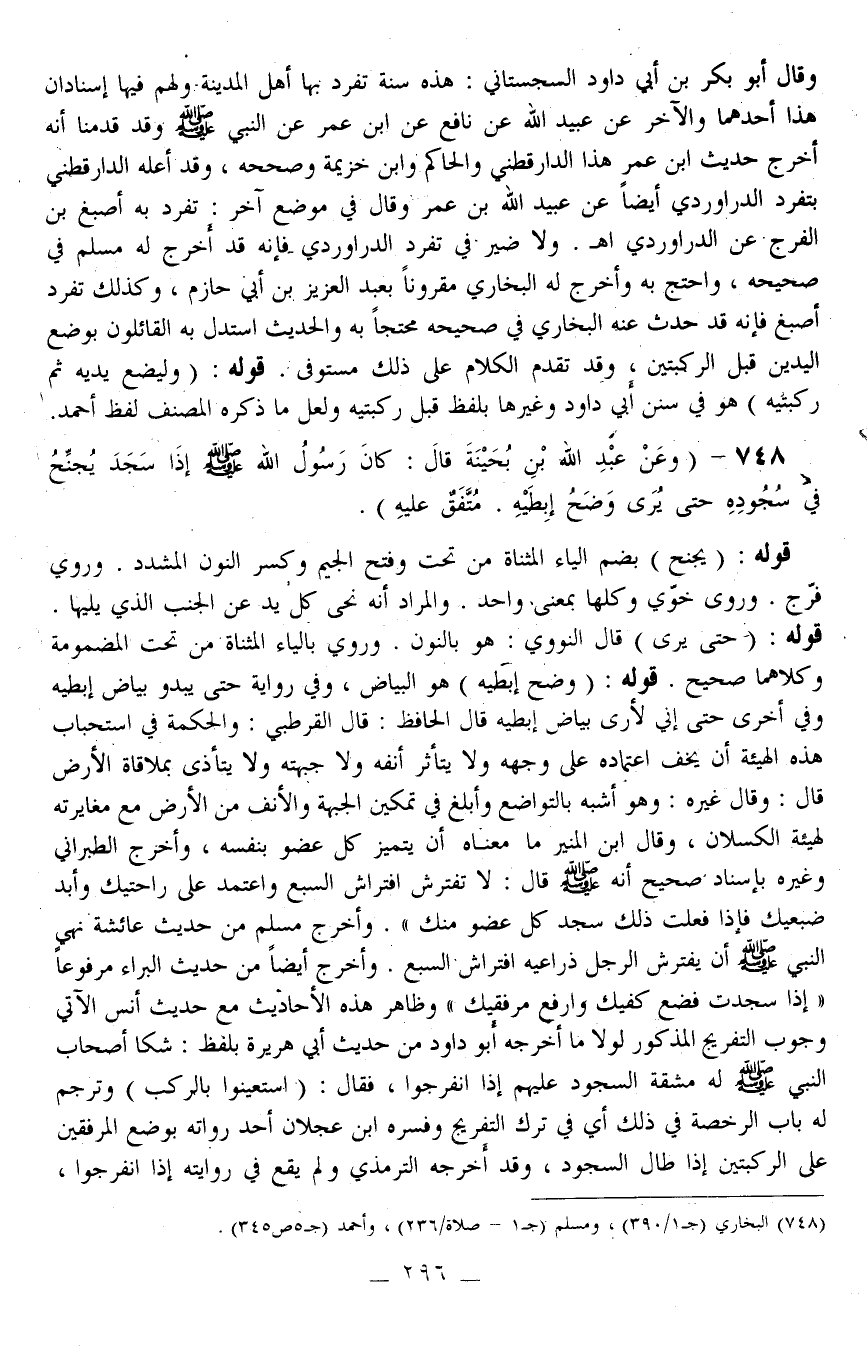 وقال أبو بكر بن أبي داود السجستاني : هذه سنة تفرد بها أهل المدينة ولهم فيها إسنادان
هذا أحدهما والآخر عن عبيد الله عن نافع عن ابن عمر عن النبي ﷺ وقد قدمنا أنه
أخرج حديث ابن عمر هذا الدارقطني والحاكم وابن خزيمة وصححه ، وقد أعله الدارقطني
بتفرد الدراوردي أيضاً عن عبيد الله بن عمر وقال في موضع آخر : تفرد به أصبغ بن
الفرج عن الدراوردي اهـ . ولا ضير في تفرد الدراوردي فإنه قد أخرج له مسلم في
صحيحه ، واحتج به وأخرج له البخاري مقروناً بعبد العزيز بن أبي حازم ، وكذلك تفرد
أصبغ فإنه قد حدث عنه البخاري في صحيحه محتجاً به والحديث استدل به القائلون بوضع
اليدين قبل الركبتين ، وقد تقدم الكلام على ذلك مستوفى . قوله : ( وليضع يديه ثم
ركبتيه ) هو في سنن أبي داود وغيرها بلفظ قبل ركبتيه ولعل ما ذكره المصنف لفظ أحمد.
٧٤٨ – ( وعَنْ عبْدِ الله بْنِ بُحَيْنَةَ قالَ : كانَ رَسُولُ الله ﷺ إذَا سَجَدَ يُجنِّحُ
في سُجُودِهِ حتى يُرَى وَضَحُ إبطَيْهِ . مُتَّفَقٌ عليهِ ) .
قوله : ( يجنح ) بضم الياء المثناة من تحت وفتح الجيم وكسر النون المشدد . وروي
فرّج . وروى خوّي وكلها بمعنى واحد . والمراد أنه نحى كل يد عن الجنب الذي يليها .
قوله : ( حتى يرى ) قال النووي : هو بالنون . وروي بالياء المثناة من تحت المضمومة
وكلاهما صحيح . قوله : ( وضح إبطيه ) هو البياض ، وفي رواية حتى يبدو بياض إبطيه
وفي أخرى حتى إني لأرى بياض إبطيه قال الحافظ : قال القرطبي : والحكمة في استحباب
هذه الهيئة أن يخف اعتماده على وجهه ولا يتأثر أنفه ولا جبهته ولا يتأذى بملاقاة الأرض
قال : وقال غيره : وهو أشبه بالتواضع وأبلغ في تمكين الجبهة والأنف من الأرض مع مغايرته
لهيئة الكسلان ، وقال ابن المنير ما معناه أن يتميز كل عضو بنفسه ، وأخرج الطبراني
وغيره بإسناد صحيح أنه ﷺ قال : لا تفترش افتراش السبع واعتمد على راحتيك وأبد
ضبعيك فإذا فعلت ذلك سجد كل عضو منك » . وأخرج مسلم من حديث عائشة نهى
النبي ﷺ أن يفترش الرجل ذراعيه افتراش السبع . وأخرج أيضاً من حديث البراء مرفوعاً
« إذا سجدت فضع كفيك وارفع مرفقيك » وظاهر هذه الأحاديث مع حديث أنس الآتي
وجوب التفريج المذكور لولا ما أخرجه أبو داود من حديث أبي هريرة بلفظ : شكا أصحاب
النبي ﷺ له مشقة السجود عليهم إذا انفرجوا ، فقال : ( استعينوا بالركب ) وترجم
له باب الرخصة في ذلك أي في ترك التفريج وفسره ابن عجلان أحد رواته بوضع المرفقين
على الركبتين إذا طال السجود ، وقد أخرجه الترمذي ولم يقع في روايته إذا انفرجوا ،
(٧٤٨) البخاري (جـ١/٣٩٠) ، ومسلم (جـ١ – صلاة/٢٣٦) ، وأحمد (جـ٥ص٣٤٥) .
— ٢٩٦ —